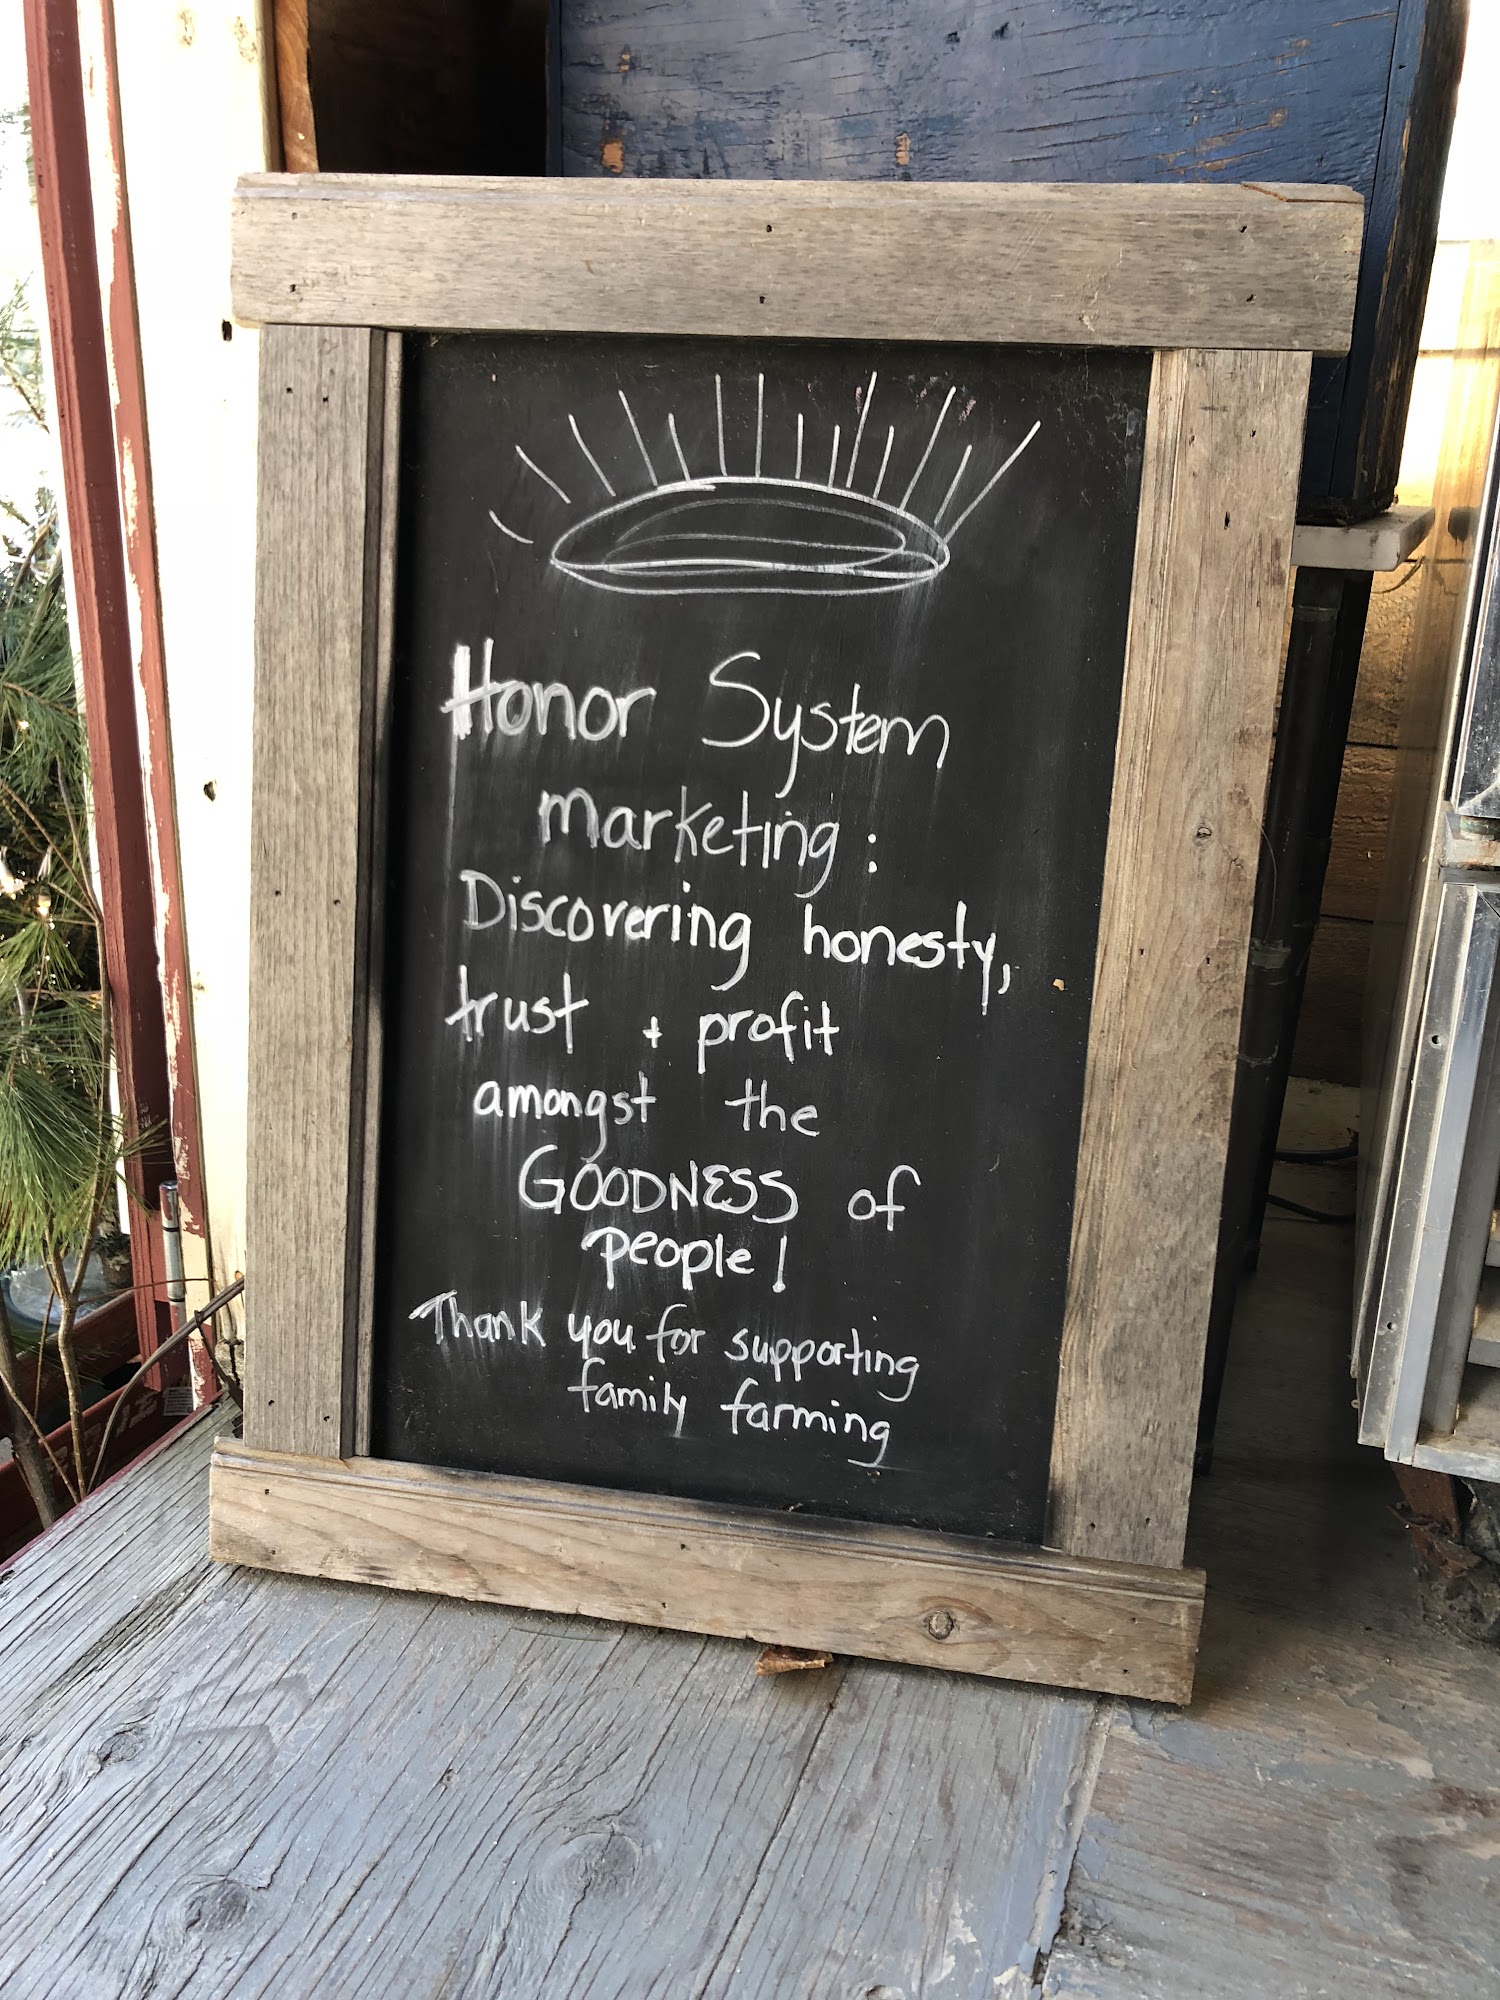 Honor System
marketing:
Discovering honesty,
trust + profit
amongst the
GOODNESS of
people!
Thank you for supporting
family farming